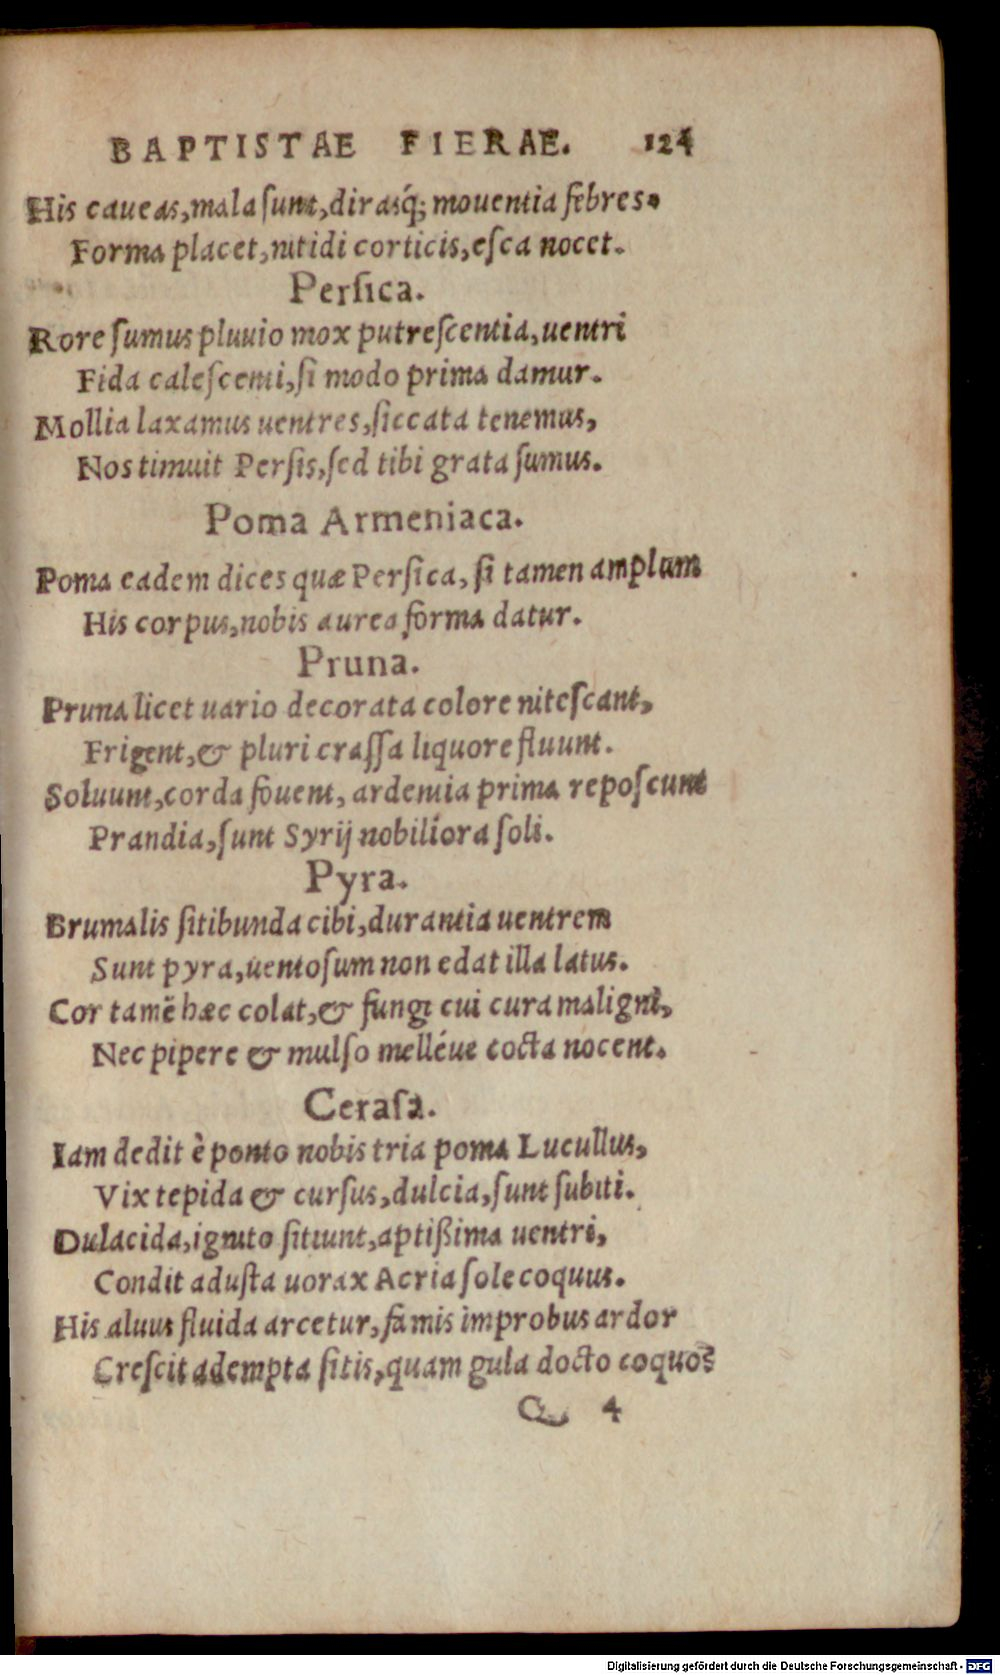 BAPTISTAE FIERAE. 124
His caueas, mala sunt, dirasq́; mouentia febres.
Forma placet, nitidi corticis, esca nocet.
Persica.
Rore sumus pluuio mox putrescentia, uentri
Fida calescenti, si modo prima damur.
Mollia laxamus uentres, siccata tenemus,
Nos timuit Persis, sed tibi grata sumus.
Poma Armeniaca.
Poma eadem dices quæ Persica, si tamen amplum
His corpus, nobis aurea forma datur.
Pruna.
Pruna licet uario decorata colore nitescant,
Frigent, & pluri crassa liquore fluunt.
Soluunt, corda fouent, ardentia prima reposcunt
Prandia, sunt Syrij nobiliora soli.
Pyra.
Brumalis sitibunda cibi, durantia uentrem
Sunt pyra, uentosum non edat illa latus.
Cor tamẽ hæc colat, & fungi cui cura maligni,
Nec pipere & mulso melléue cocta nocent.
Cerasa.
Iam dedit è ponto nobis tria poma Lucullus,
Vix tepida & cursus, dulcia, sunt subiti.
Dulacida, ignito sitiunt, aptißima uentri,
Condit adusta uorax Acria sole coquus.
His aluus fluida arcetur, famis improbus ardor
Crescit adempta sitis, quam gula docto coquos
Q 4
Digitalisierung gefördert durch die Deutsche Forschungsgemeinschaft - DFG